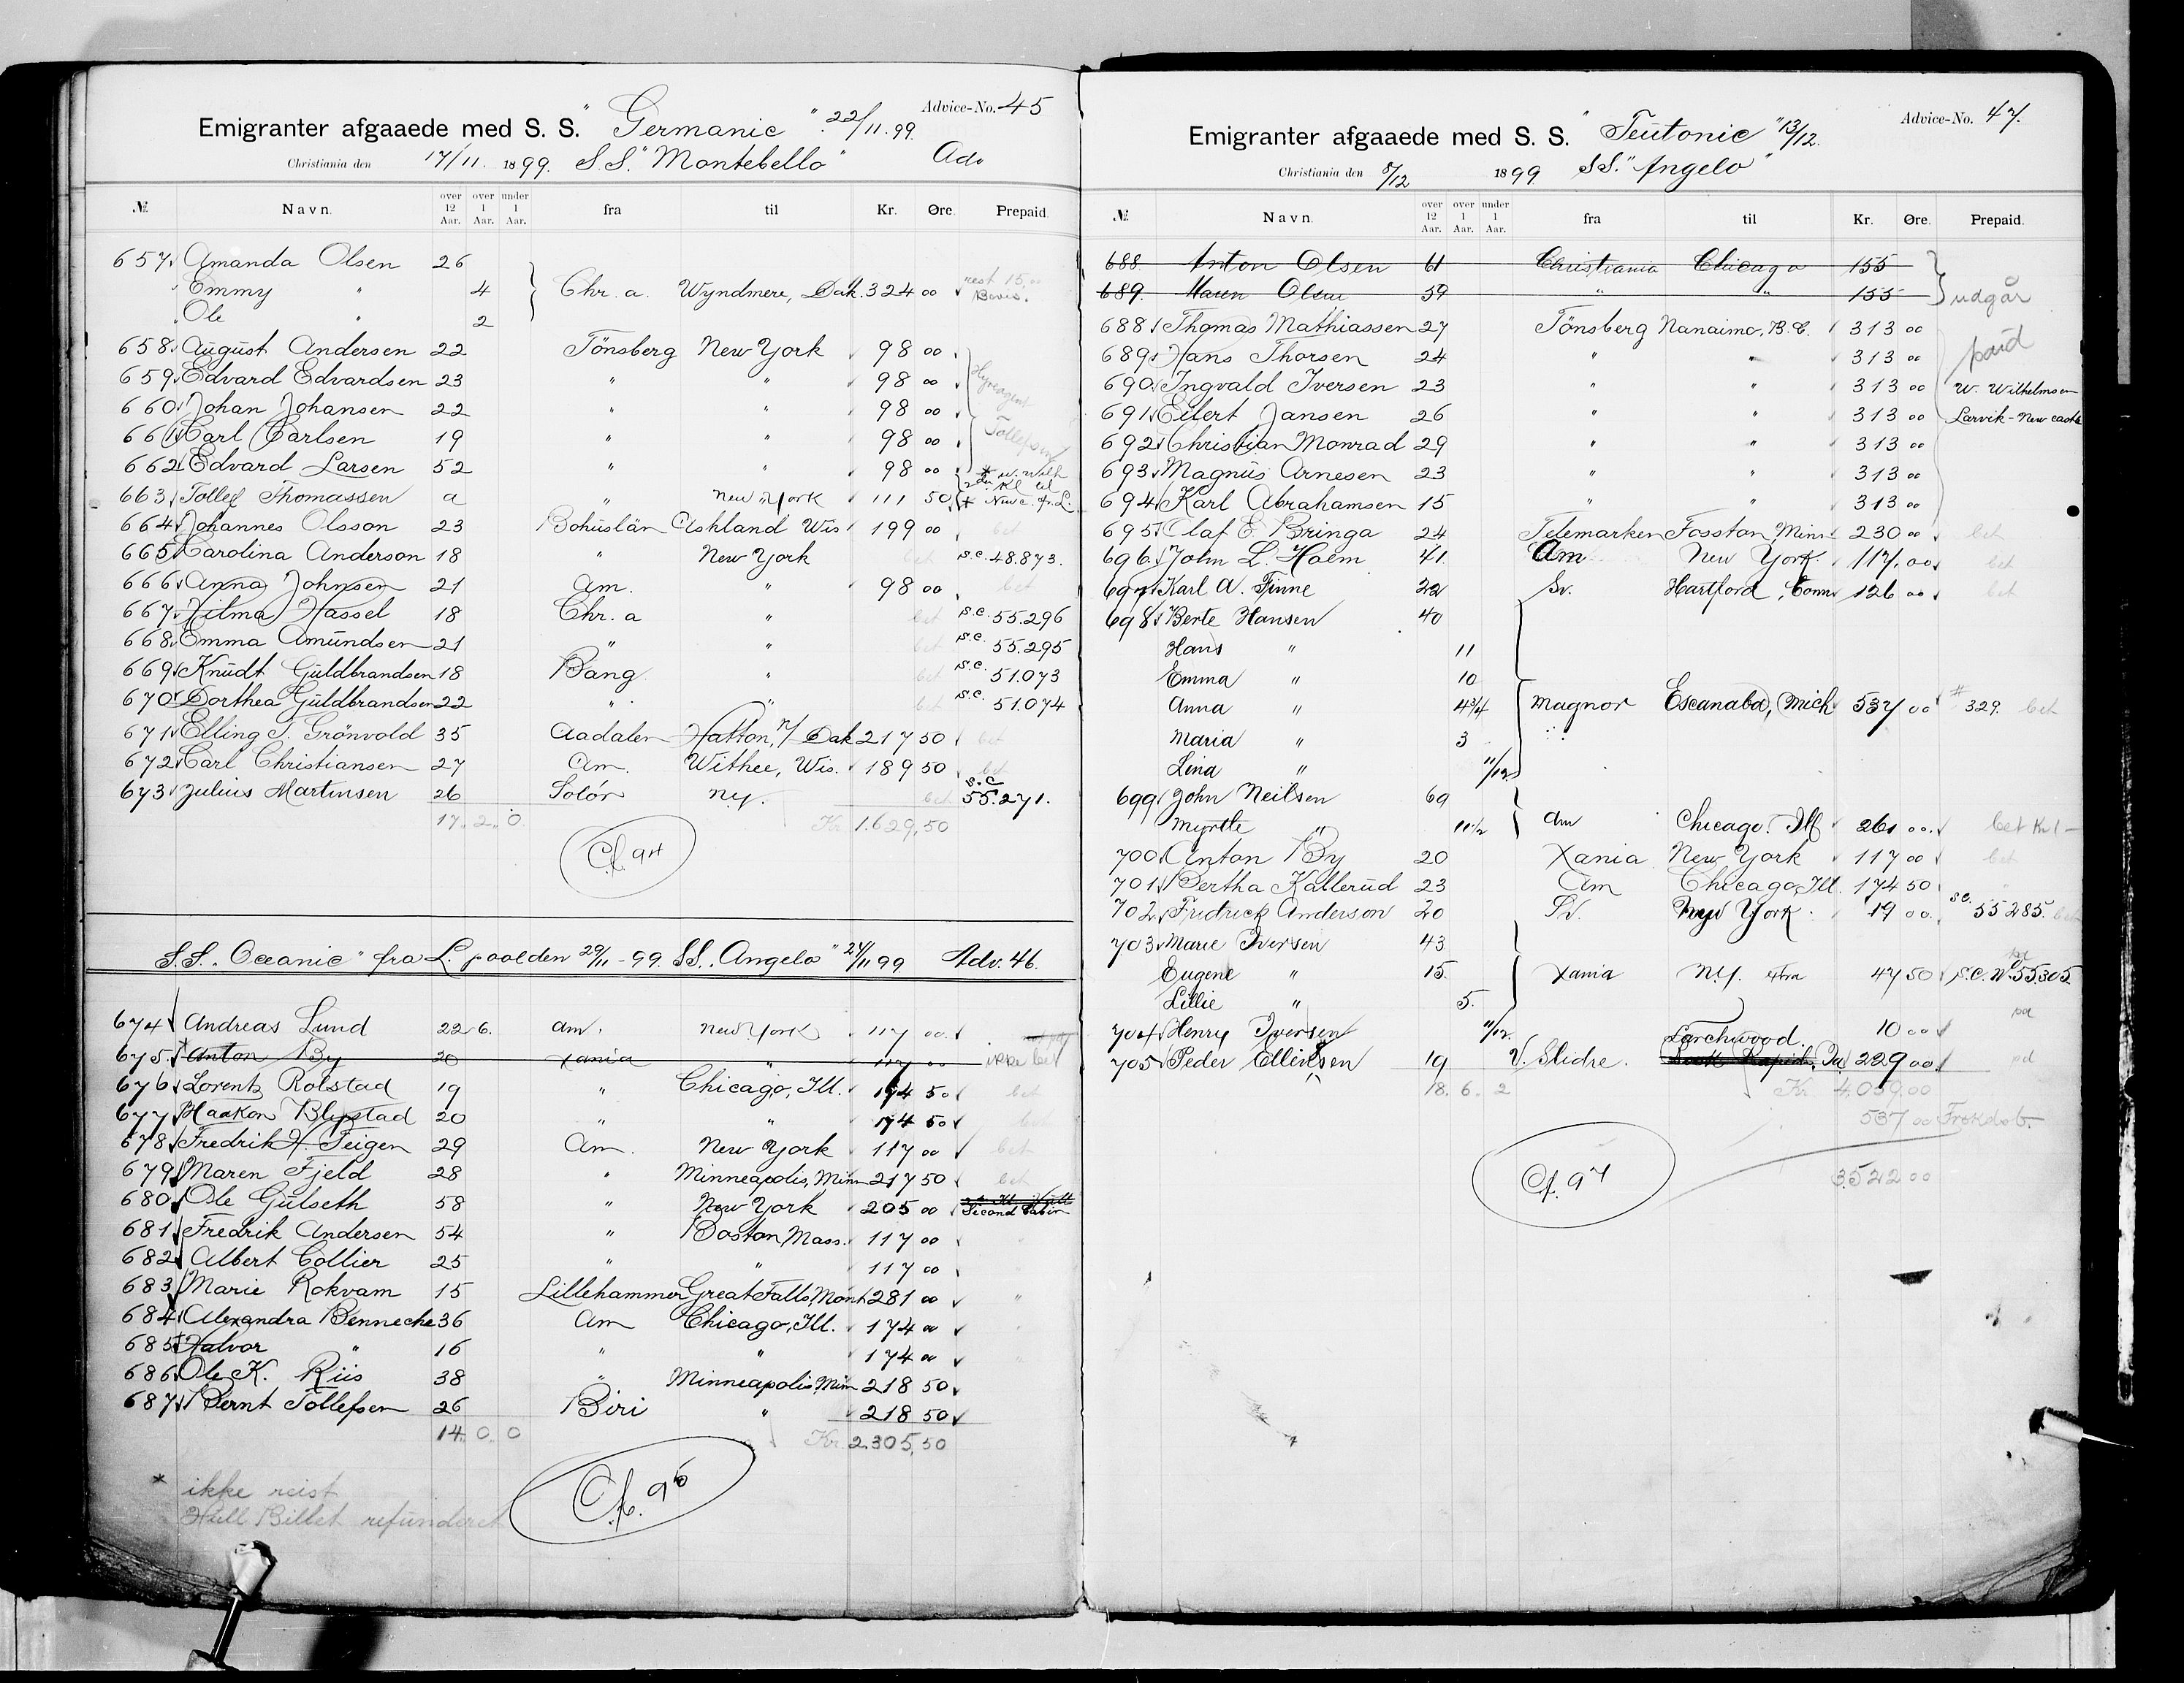 Advice-No. 45
Emigranter afgaaede med S. S. "Germanic" 22/11.99.
Christiania den 17/11. 1899. S.S. "Montebello" Adv
№ Navn. over 12 Aar. over 1 Aar. under 1 Aar. fra til Kr. Øre. Prepaid.
657. Amanda Olsen 26
" Emmy " 4 Chr.a. Wyndmere, Dak. 324 00 rest 15,00
" Ole " 2
658. August Andersen 22 Tönsberg New York 98 00
659. Edvard Edvardsen 23 " " 98 00
660. Johan Johansen 22 " " 98 00
661. Carl Carlsen 19 " " 98 00 Tollefsen
662. Edvard Larsen 52 " " 98 00
663. Tollef Thomassen a " New York 111 50
664. Johannes Olsson 23 Bohuslän Ashland Wis 199 00 bet
665. Carolina Anderson 18 " New York bet s.c. 48.873.
666. Anna Johnsen 21 Am. " 98 00 bet
667. Hilma Hassel 18 Chr.a " bet s.c. 55.296
668. Emma Amundsen 21 " " bet s.c. 55.295
669. Knudt Guldbrandsen 18 Bang " bet s.c. 51.073
670. Dorthea Guldbrandsen 22 " " bet s.c. 51.074
671. Elling T. Grönvold 35 Aadalen Hatton, N/ Dak 217 50 bet
672. Carl Christiansen 27 Am. Withee, Wis. 189 50 bet
673. Julius Martinsen 26 Solör N.Y. bet s.c. 55.271.
17. 2. 0. Kr. 1.629,50
Cf. 94
S.S. "Oceanic" fra L.pool den 29/11-99. SS. "Angelo" 24/11 99 Adv. 46.
674. Andreas Lund 22 6. Am. New York 117 00
675. * Anton By 20 Xania " 117 00 ikke bet
676. Lorentz Rolstad 19 " Chicago, Ill. 174 50 bet
677. Haakon Blystad 20 " " 174 50 bet
678. Fredrik H. Teigen 29 Am. New York 117 00 bet
679. Maren Fjeld 28 " Minneapolis, Minn 217 50 bet
680. Ole Gulseth 58 " New York 205 00 Second Cabin
681. Fredrik Andersen 54 " Boston, Mass. 117 00
682. Albert Collier 25 " " 117 00
683. Marie Rokvam 15 Lillehammer Great Falls, Mont 281 00 "
684. Alexandra Benneche 36 Am Chicago, Ill. 174 00
685. Halvor " 16 " " 174 00
686. Ole K. Riis 38 " Minneapolis, Minn 218 50
687. Bernt Tollefsen 26 Biri " 218 50
14. 0. 0 Kr. 2.305,50
* ikke reist
Hull Billet refunderet
Cf. 96
Advice-No. 47.
Emigranter afgaaede med S. S. "Teutonic" 13/12.
Christiania den 8/12 1899 SS. "Angelo"
№ Navn. over 12 Aar. over 1 Aar. under 1 Aar. fra til Kr. Øre. Prepaid.
688 Anton Olsen 61 Christiania Chicago 155
689. Maren Olsen 59 " " 155 udgår
688. Thomas Mathiassen 27 Tönsberg Nanaimo, B.C. 313 00
689. Hans Thorsen 24 " " 313 00 paid
690. Ingvald Iversen 23 " " 313 00 W. Wilhelmsen
691. Eilert Jansen 26 " " 313 00 Larvik-Newcastle
692. Christian Monrad 29 " " 313 00
693. Magnus Arnesen 23 " " 313 00
694. Karl Abrahamsen 15 " " 313 00
695. Olaf E Bringa 24 Telemarken Fosston, Minn. 230 00 bet
696. John L. Holm 41. Am New York. 117, 00 bet
697. Karl A. Finne 22 Sv. Hartford, Conn 126 00 bet
698. Berte Hansen 40
Hans " 11
Emma " 10
Anna " 4 3/4 Magnor Escanaba, Mich 537 00 # 329. bet
Maria " 3
Lina " 11/12
699. John Neilsen 69
Myrtle " 11 1/2 Am Chicago. Ill 261 00. bet
700. Anton By 20 Xania New York 117 00 bet
701. Bertha Kallerud 23 Am Chicago, Ill. 174 50
702. Fredrick Anderson 20 Sv. New York. 19 00. s.c. 55 285. bet
703. Marie Iversen 43
Eugene " 15. Xania N.Y. 47 50 s.c. No 55.305
Lillie " 5.
704. Henry Iversen 11/12. 10 00 pd
705. Peder Ellingsen 19 V. Slidre. Larchwood. Rock Rapids, Ia 229 00 pd
18. 6. 2 Kr. 4.059.00
537 00
3.522 00
Cf. 97